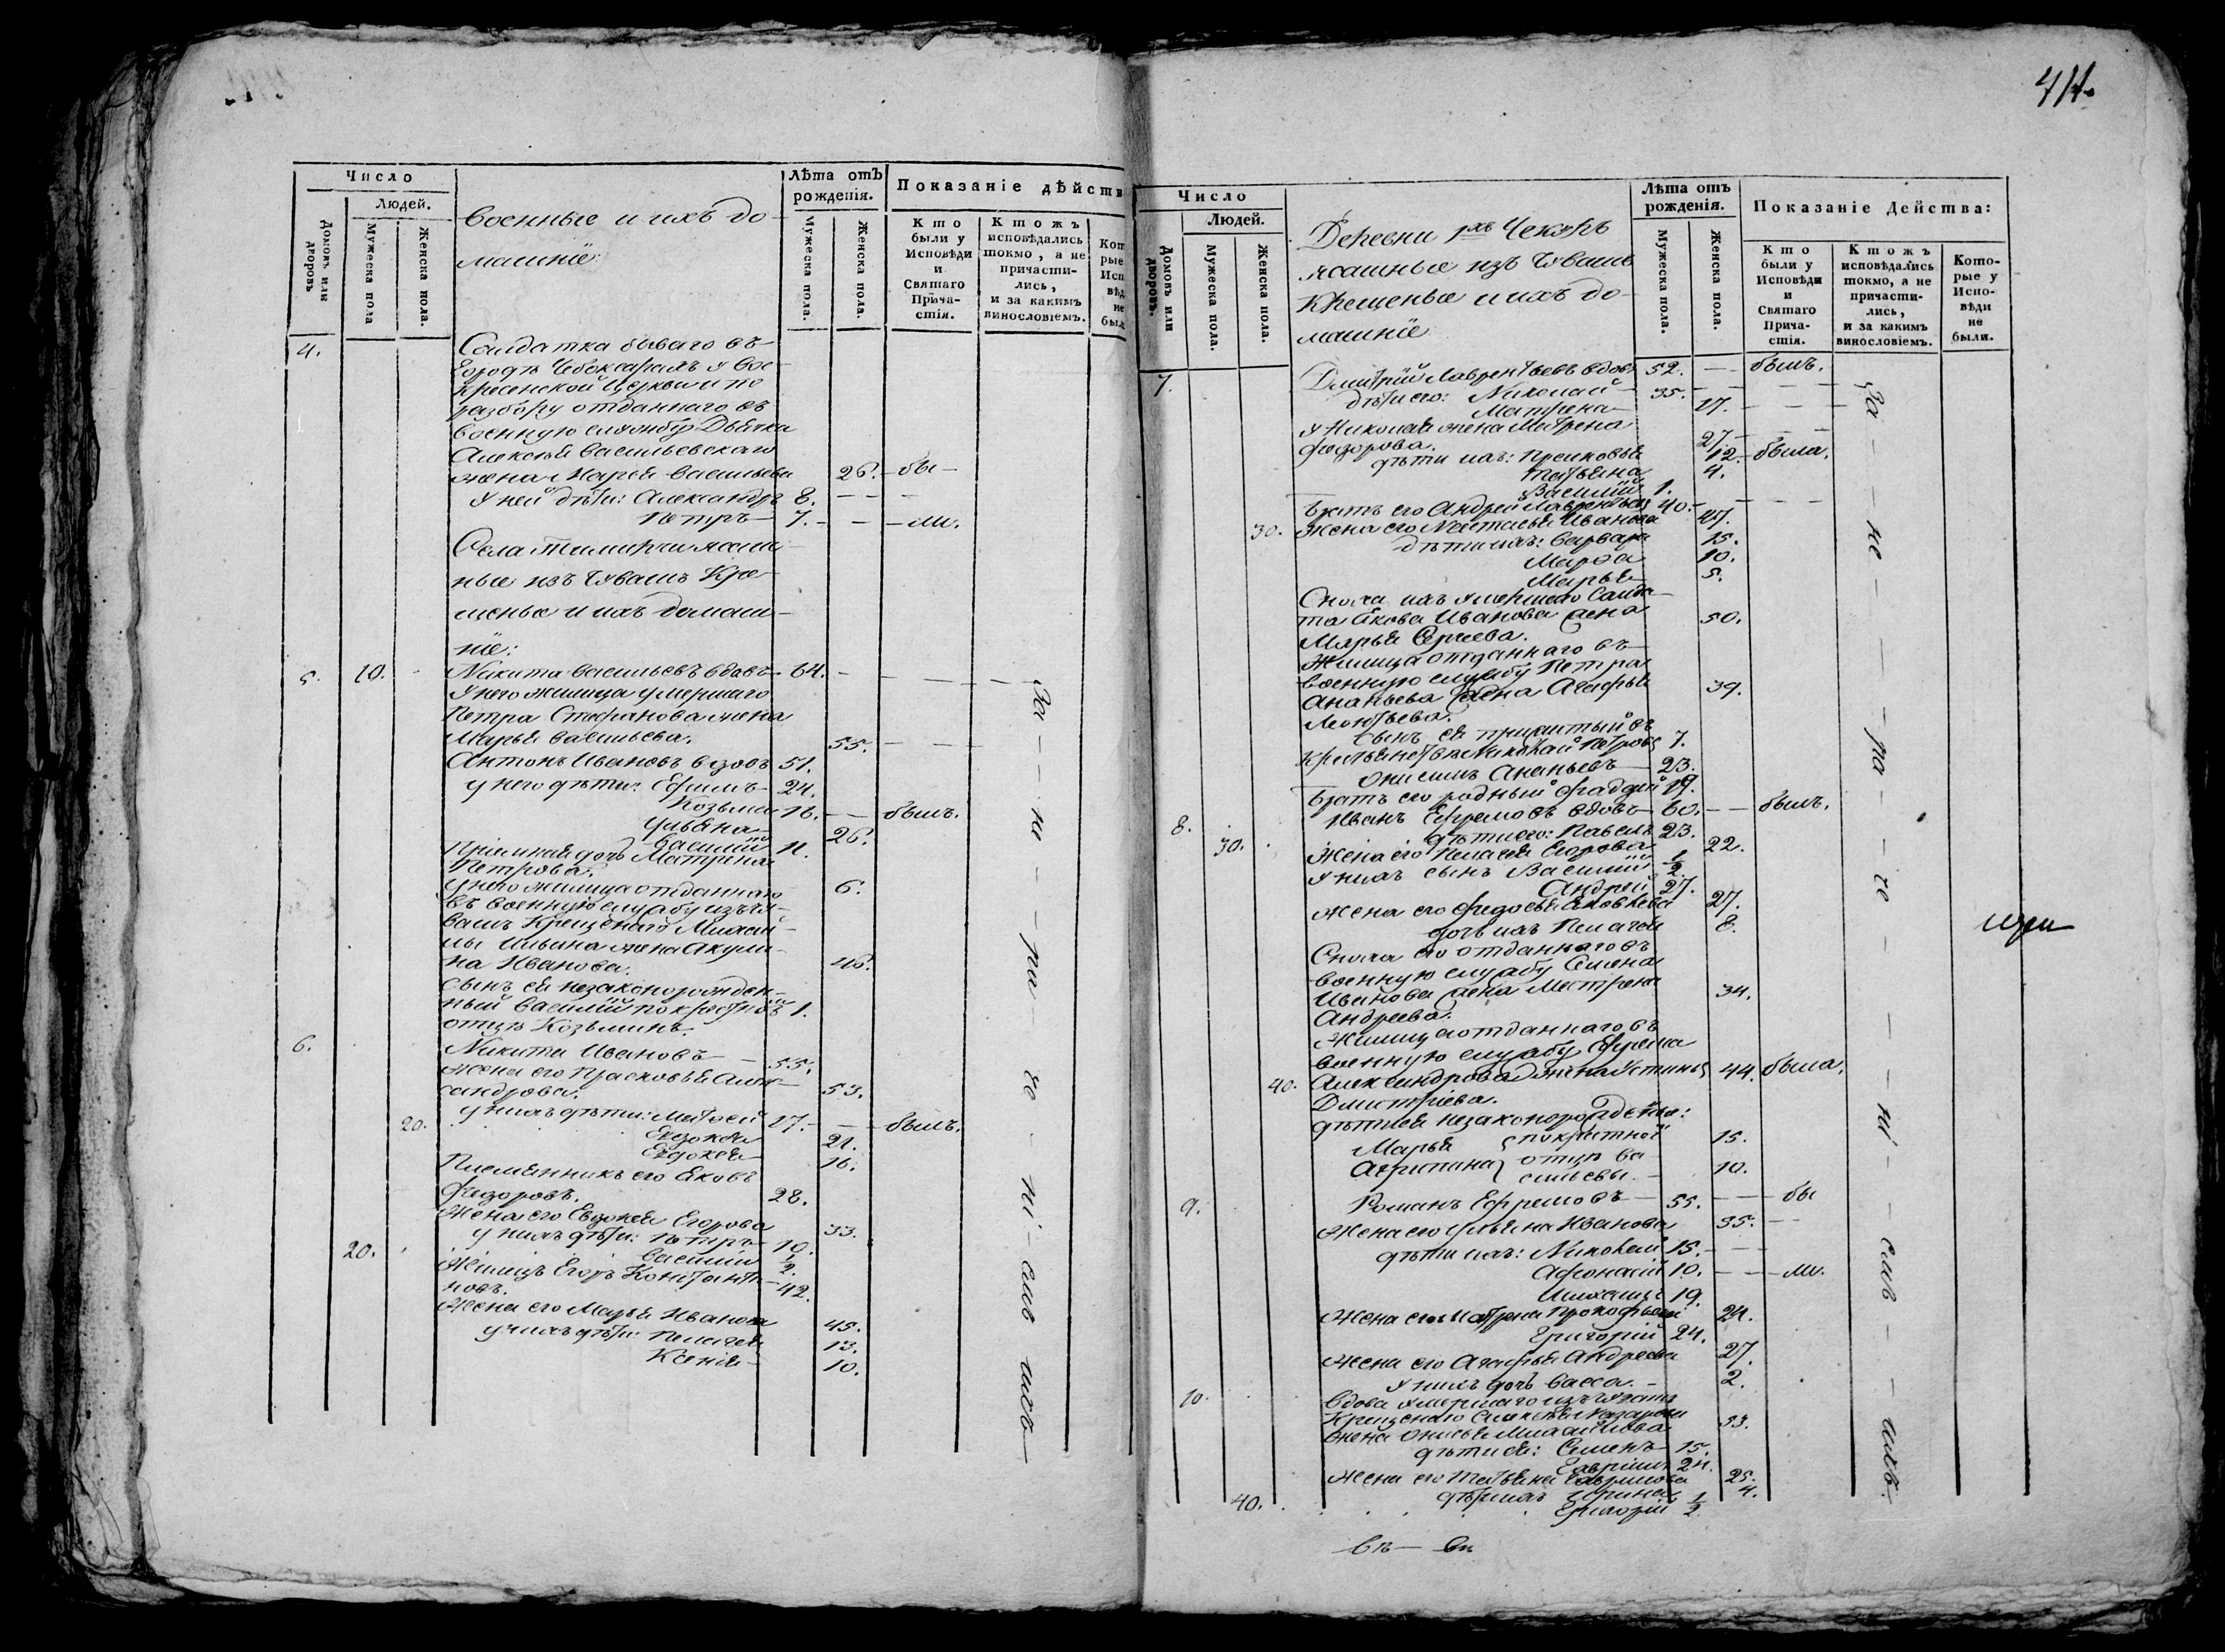 Число
Людей.
Домовъ или дворовъ
Мужеска пола
Женска пола.
Военные и ихъ до-
машнiе:
Лѣта отъ
рожденiя.
Мужеска пола.
Женска пола.
Показанiе дѣйств
Кто
были у
Исповѣди
и
Святаго
Прича-
стiя.
Ктожъ
исповѣдались
токмо, а не
причасти-
лись,
и за какимъ
винословiемъ.
4.
Солдатка бываго въ
Городѣ Чебоксарахъ у Вос-
кресенской Церкви и по
разбору отданнаго въ
военную службу Дьячка
Алексѣя Васильевскаго
жена Марья Васильева 26. бы-
У ней дѣти: Александръ 8.
Петръ 7. ли.
Села ясаш-
ные изъ Чувашъ Кре-
щеные и ихъ домаш-
нiе:
5. 10. Никита Васильевъ вдовъ 64.
У него жилица умершаго
Петра Стефанова жена
Марья Васильева. 55.
Антонъ Ивановъ вдовъ 51.
у него дѣти: Ефимъ 24.
Козьма 16. былъ.
Ульяна 26.
Василiй 11.
Прiемная дочь Матрена
Петрова. 6.
У него жилица отданнаго
въ военную службу изъ Чу-
вашъ Крещенаго
Ильина жена Акули-
на Иванова. 46.
Сынъ ея незаконорожден-
ный Василiй по крестно 1.
отцѣ Козьминъ.
6. Никита Ивановъ 55.
Жена его Прасковья Алек-
сандрова. 53.
20. у нихъ дѣти: Матвей 17. былъ.
Евдокея 21.
Евдокея 16.
Племянникъ его Яковъ
Федоровъ. 28.
Жена его Евдокея Егорова 33.
у нихъ дѣти: Петръ 10.
20. Василiй ½.
Жилецъ Егоръ Константи-
новъ. 42.
Жена его Марья Иванова 45.
у нихъ дѣти: Пелагея 13.
Ксенiя 10.
За не ра че нi емъ
Число
Людей.
Домовъ или дворовъ.
Мужеска пола.
Женска пола.
Деревни Чекуръ
ясашные изъ Чувашъ
Крещеные и ихъ до-
машнiе
Лѣта отъ
рожденiя.
Мужеска пола.
Женска пола.
Показанiе Действа:
Кто
были у
Исповѣди
и
Святаго
Прича-
стiя.
Ктожъ
исповѣдались
токмо, а не
причасти-
лись,
и за какимъ
винословiемъ.
Кото-
рые у
Испо-
вѣди
не
были.
7. Дмитрiй Лаврентьевъ вдовъ 52. былъ.
дѣти его: Николай 35.
Матрена 17.
у Николая жена Матрена
Федорова. 27.
дѣти ихъ: Прасковья 12. была.
Татьяна 4.
Василiй 1.
Братъ его Андрей Лаврентьевъ 40.
30. Жена его Настасья Иванова 47.
дѣти ихъ: Варвара 15.
Марфа 10.
Марья 5.
Сноха ихъ умершаго Солда-
та Якова Иванова жена 50.
Марья Сергеева.
Жилица отданнаго въ
военную службу Петра
Ананьева жена Агафья 39.
Леонтьева.
Сынъ ея прижитый въ
Николай Петровъ 7.
Онисимъ Ананьевъ 23.
Братъ его родный Фаддей 19.
8. Иванъ Ефремовъ вдовъ 60. былъ.
30. дѣти его: Павелъ 23.
Жена его Пелагея Егорова 22.
у нихъ сынъ Василiй ½
Андрей 27.
Жена его Федосья Яковлева 27.
дочь ихъ Пелагея 8.
Сноха его отданнаго въ
военную службу Семена
Иванова жена Матрена 34.
Андреева.
Жилица отданнаго въ
военную службу Ефрема
40. Александрова жена Устинья 44. была.
Дмитрiева.
дѣти ея незаконорожденые:
Марья по крестной 15.
Агрипина отцѣ Ва- 10.
сильевы.
9. Романъ Ефремовъ 55. бы
Жена его Ульяна Иванова 55.
дѣти ихъ: Николай 15.
Афонасiй 10. ли.
Михаилъ 19.
Жена его Матрена Прокофьева 21.
Григорiй 24.
Жена его Агафья Андреева 27.
у нихъ дочь Васса. 2.
10. Вдова умершаго изъ Чувашъ
Крещенаго Алексѣя Назарова 53.
жена Онисья Михайлова
дѣти ея: Семенъ 15.
Гаврiилъ 24.
Жена его Татьяна Гаврилова 25.
дѣти ихъ Ирина 4.
40. Григорiй ½
За не ра че нi емъ